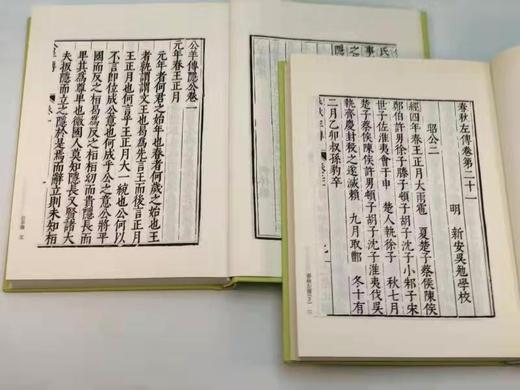 春秋左傳卷第二十一
明 新安吳勉學校
昭公二
經四年春王正月大雨雹 夏楚子蔡侯陳侯
鄭伯許男徐子滕子頓子胡子沈子小邾子宋
世子佐淮夷會于申 楚人執徐子 秋七月
楚子蔡侯陳侯許男頓子胡子沈子淮夷伐吳
執齊慶封殺之遂滅賴 九月取鄫 冬十有
二月乙卯叔孫豹卒
公羊傳隱公卷一
元年春王正月
元年者何君之始年也春者何歲之始也王
者孰謂謂文王也曷為先言王而後言正月
王正月也何言乎王正月大一統也公何以
不言即位成公意也何成乎公之意公將平
國而反之桓曷為反之桓桓幼而貴隱長而
卑其為尊卑也微國人莫知隱長又賢諸大
夫扳隱而立之隱於是焉而辭立則未知桓